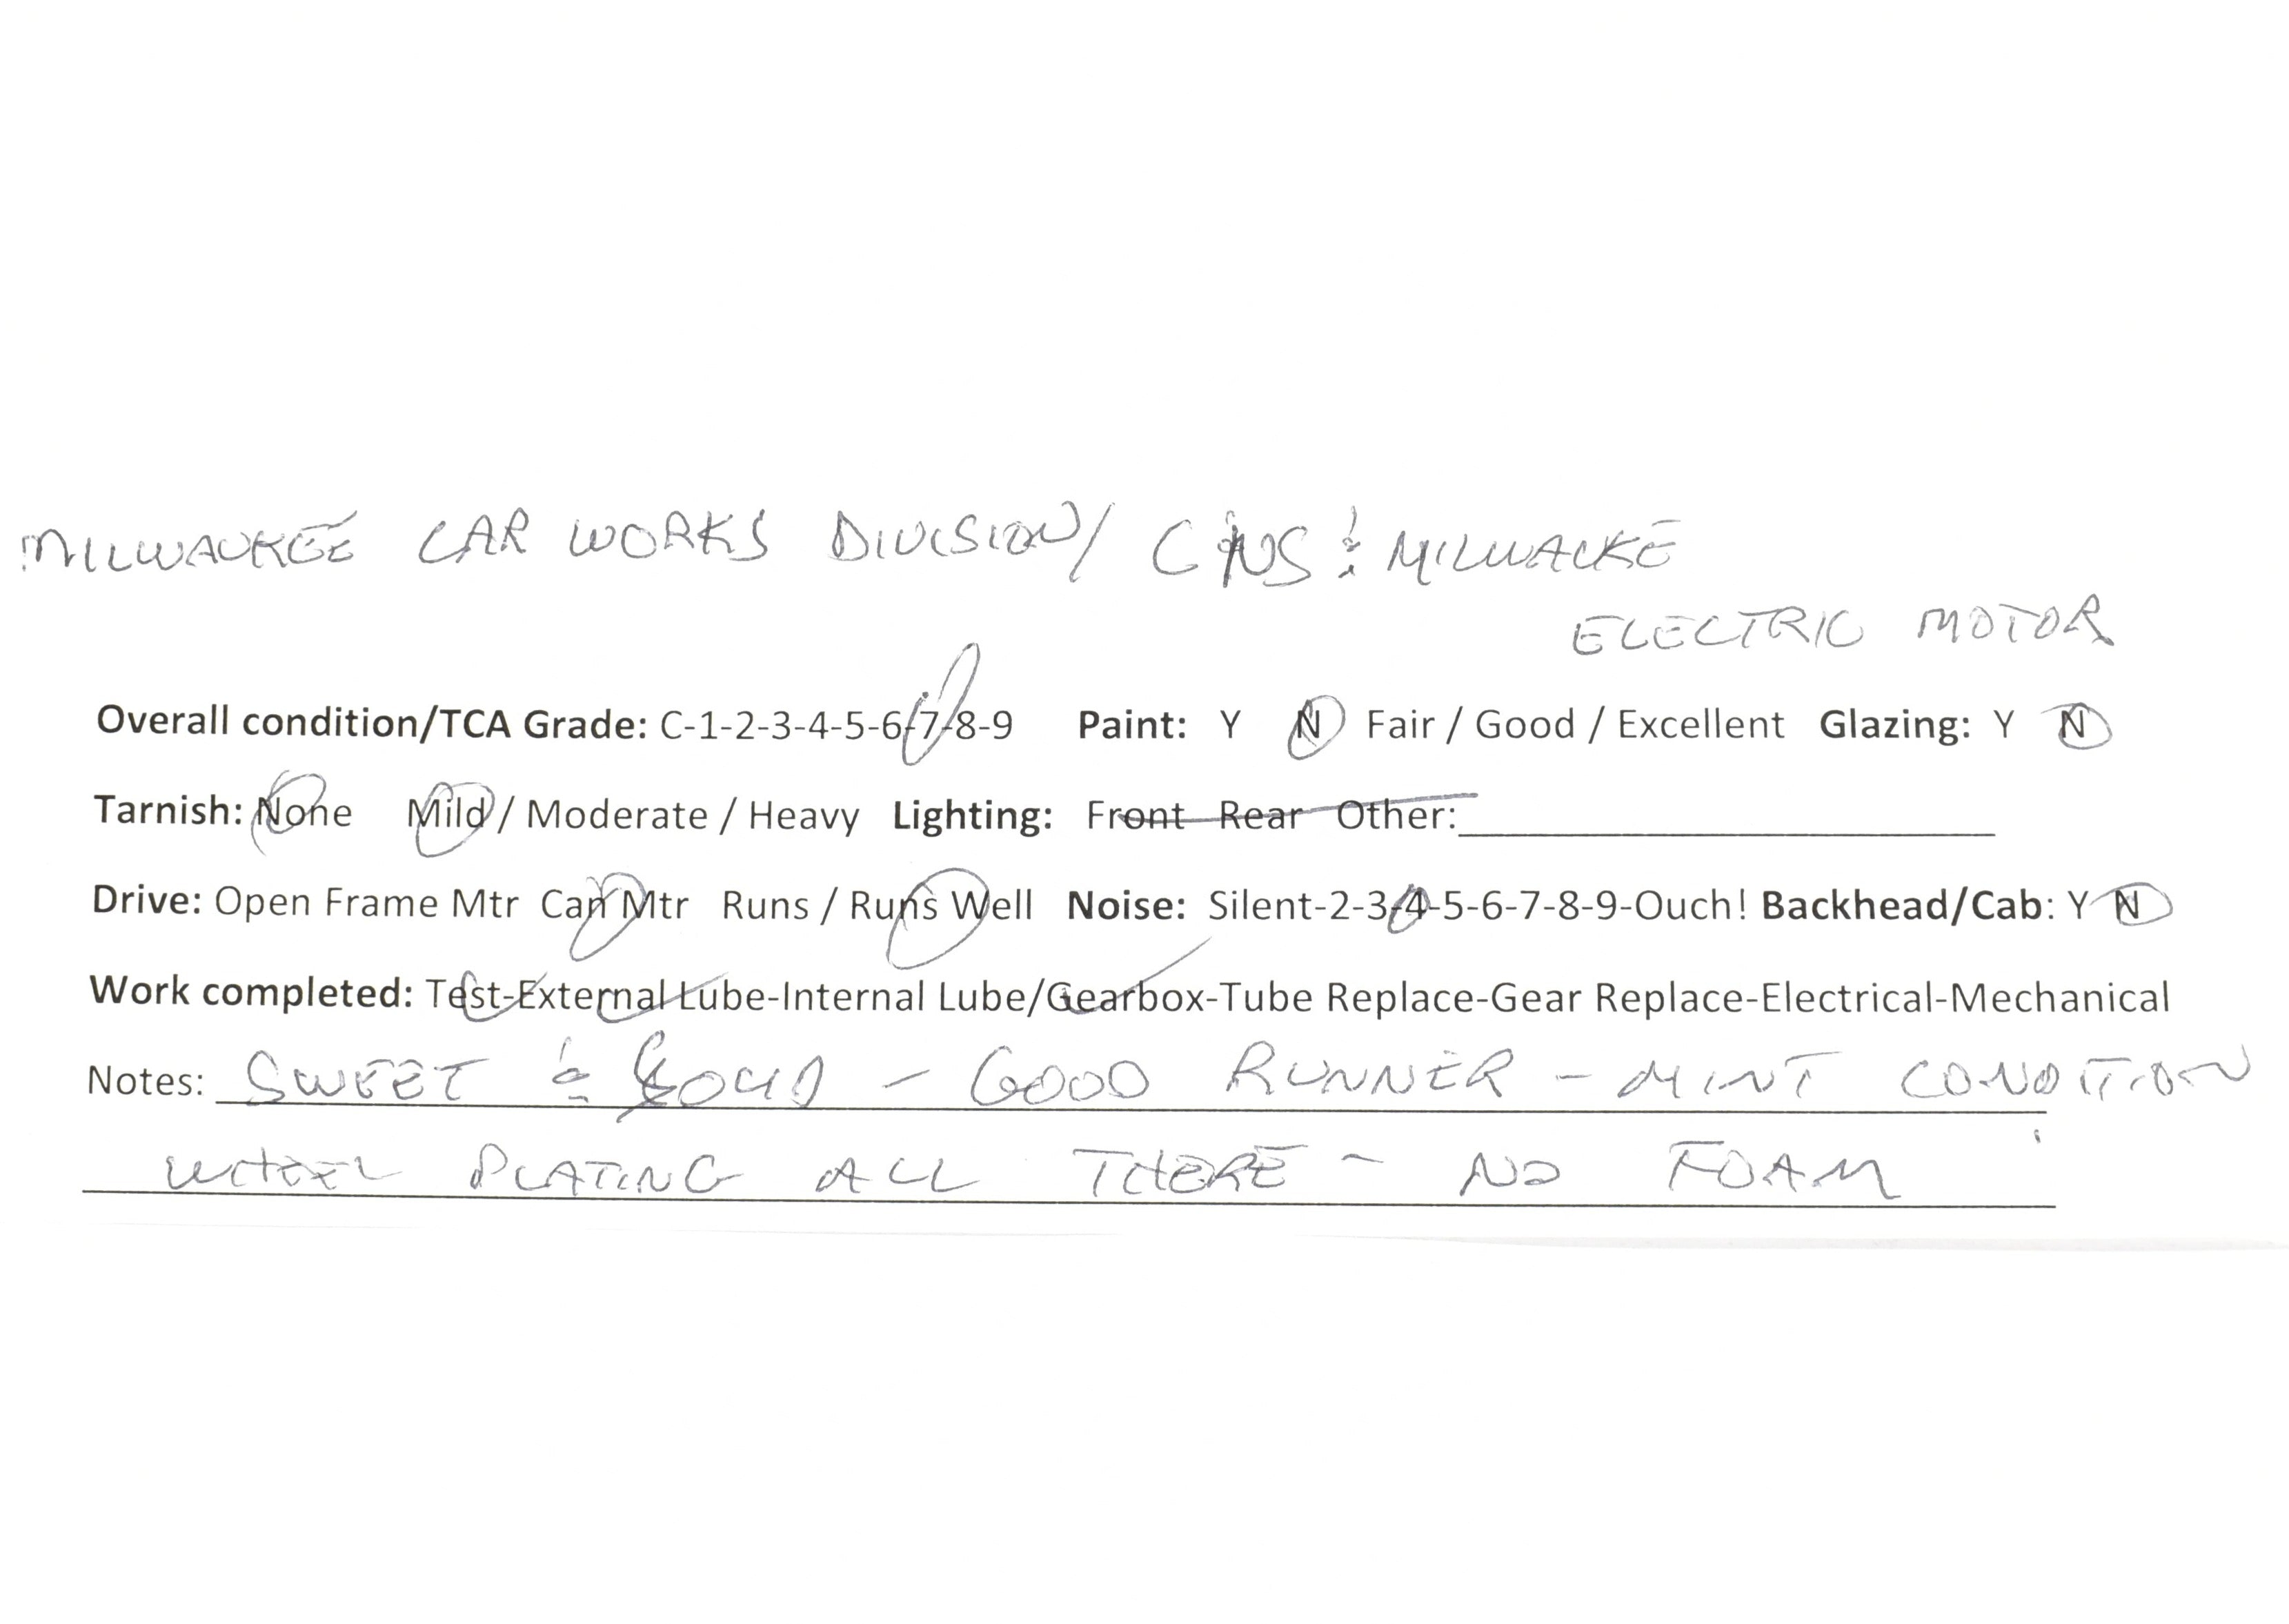 MILWAUKEE CAR WORKS DIVISION/ CNS & MILWAUKE
ELECTRIC MOTOR
Overall condition/TCA Grade: C-1-2-3-4-5-6-7-8-9 Paint: Y N Fair / Good / Excellent Glazing: Y N
Tarnish: None Mild / Moderate / Heavy Lighting: Front Rear Other:
Drive: Open Frame Mtr Can Mtr Runs / Runs Well Noise: Silent-2-3-4-5-6-7-8-9-Ouch! Backhead/Cab: Y N
Work completed: Test-External Lube-Internal Lube/Gearbox-Tube Replace-Gear Replace-Electrical-Mechanical
Notes: SWEET & SOLID - GOOD RUNNER - MINT CONDITION
WHEEL PLATING ALL THERE - NO FOAM